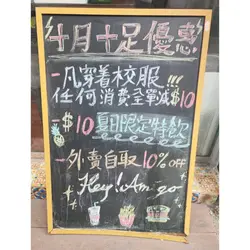 4月十足優惠
一凡穿着校服!!!
任何消費全單減$10
一$10夏日限定特飲
一外賣自取10% OFF
Hey! Am go